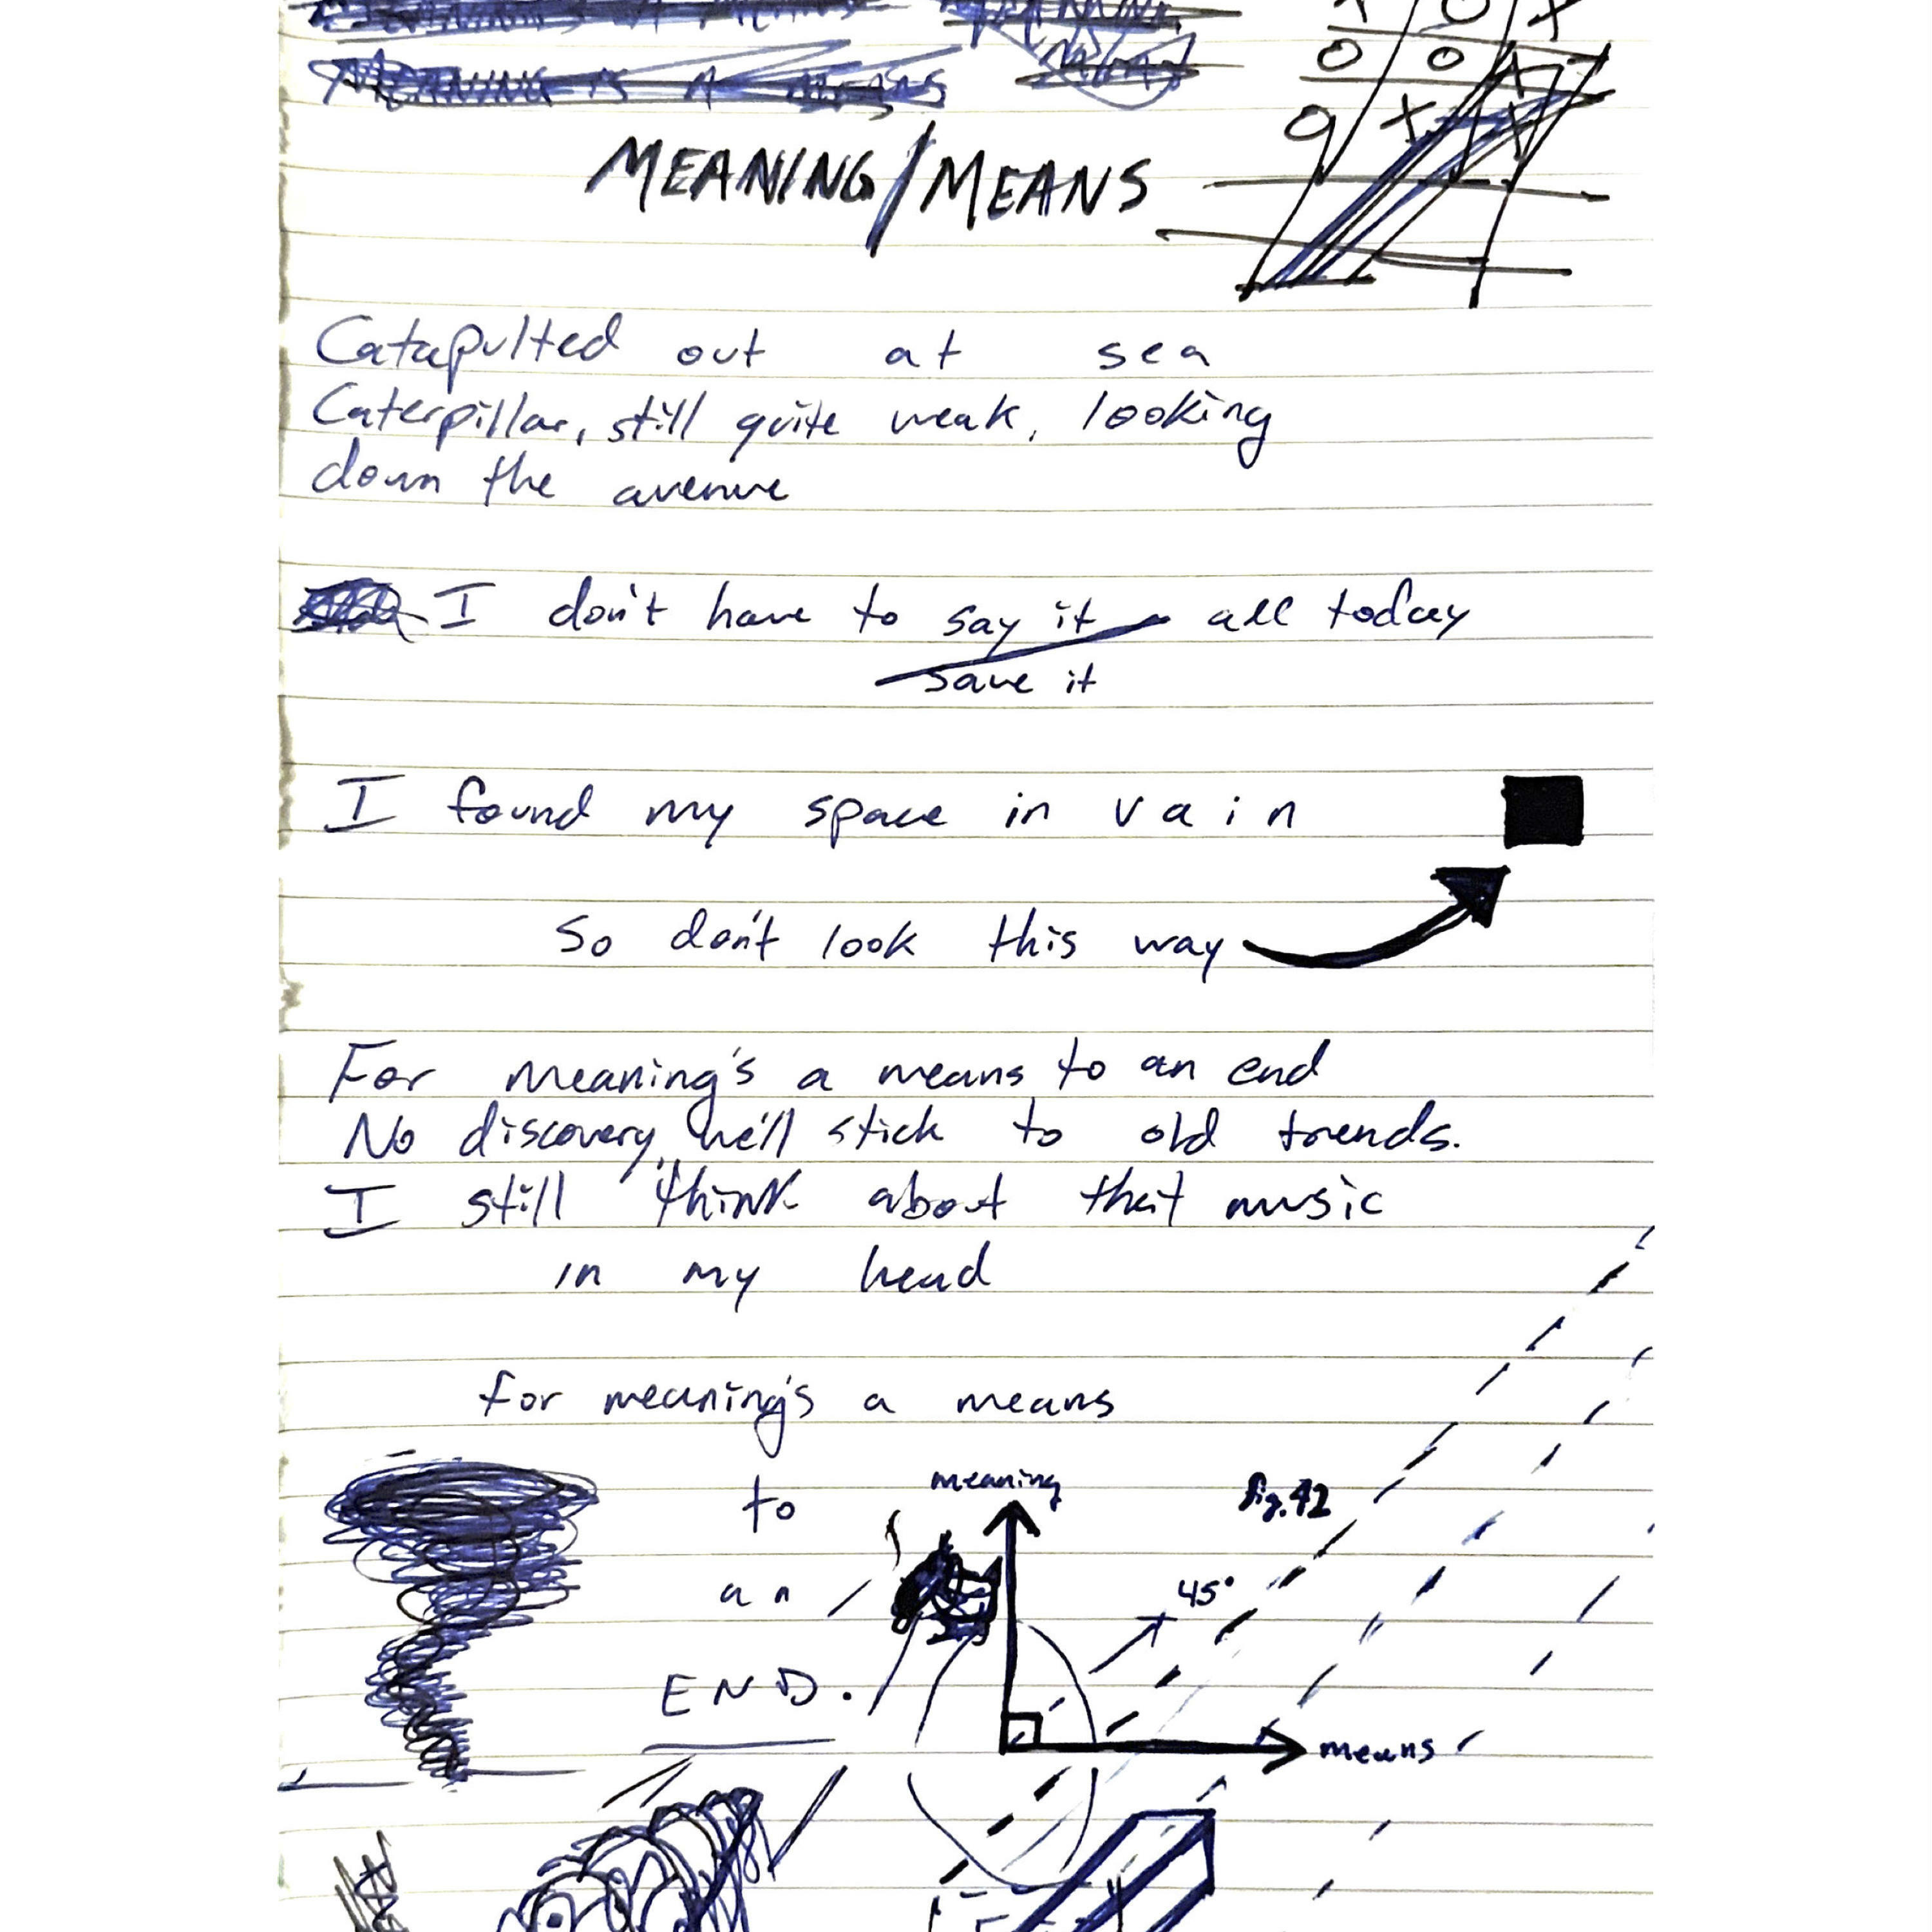 MEANING IS A MEANS
X O X
O O X
O X X
MEANING/MEANS
Catapulted out at sea
Caterpillar, still quite weak, looking
down the avenue
I don't have to say it all today
save it
I found my space in vain
So don't look this way
For meaning's a means to an end
No discovery, he'll stick to old trends.
I still think about that music
in my head
for meaning's a means
to
an
END.
meaning
fig. 42
45°
means